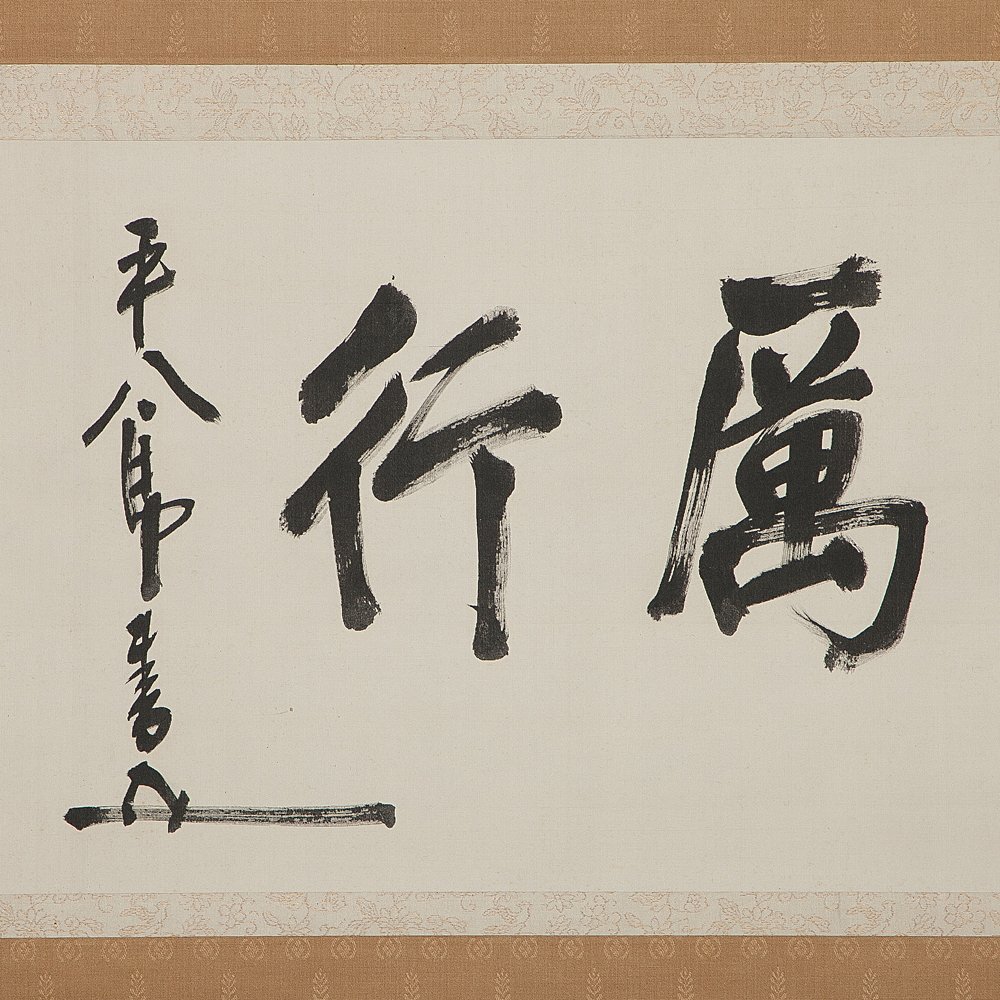 厲行
平八郎書